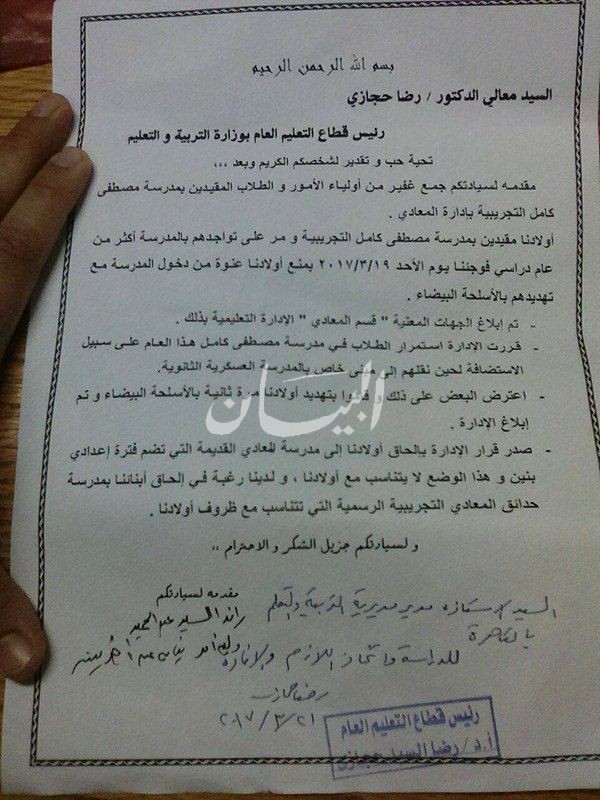 بسم الله الرحمن الرحيم
السيد معالي الدكتور / رضا حجازي
رئيس قطاع التعليم العام بوزارة التربية و التعليم
تحية حب و تقدير لشخصكم الكريم وبعد ,,,
مقدمه لسيادتكم جمع غفير من أولياء الأمور و الطلاب المقيدين بمدرسة مصطفى
كامل التجريبية بإدارة المعادي .
أولادنا مقيدين بمدرسة مصطفى كامل التجريبية و مر على تواجدهم بالمدرسة أكثر من
عام دراسي فوجئنا يوم الأحد ٢٠١٧/٣/١٩ بمنع أولادنا عنوة من دخول المدرسة مع
تهديدهم بالأسلحة البيضاء .
- تم إبلاغ الجهات المعنية " قسم المعادي " الإدارة التعليمية بذلك .
- قررت الإدارة استمرار الطلاب في مدرسة مصطفى كامل هذا العام على سبيل
الاستضافة لحين نقلهم إلى مبنى خاص بالمدرسة العسكرية الثانوية.
- اعترض البعض على ذلك و قاموا بتهديد أولادنا مرة ثانية بالأسلحة البيضاء و تم
إبلاغ الإدارة .
- صدر قرار الإدارة بإلحاق أولادنا إلى مدرسة المعادي القديمة التي تضم فترة إعدادي
بنين و هذا الوضع لا يتناسب مع أولادنا ، و لدينا رغبة في إلحاق أبنائنا بمدرسة
حدائق المعادي التجريبية الرسمية التي تتناسب مع ظروف أولادنا .
و لسيادتكم جزيل الشكر و الاحترام ,,
البيان
مقدمه لسيادتكم
رائد السيد عبد الحميد
السيد الاستاذ مدير مديرية التربية والتعليم
بالقاهرة
للدراسة واتخاذ اللازم والإفادة
رضا حجازى
٢٠١٧/٣/٢١
رئيس قطاع التعليم العام
أ.د/ رضا السيد حجازى